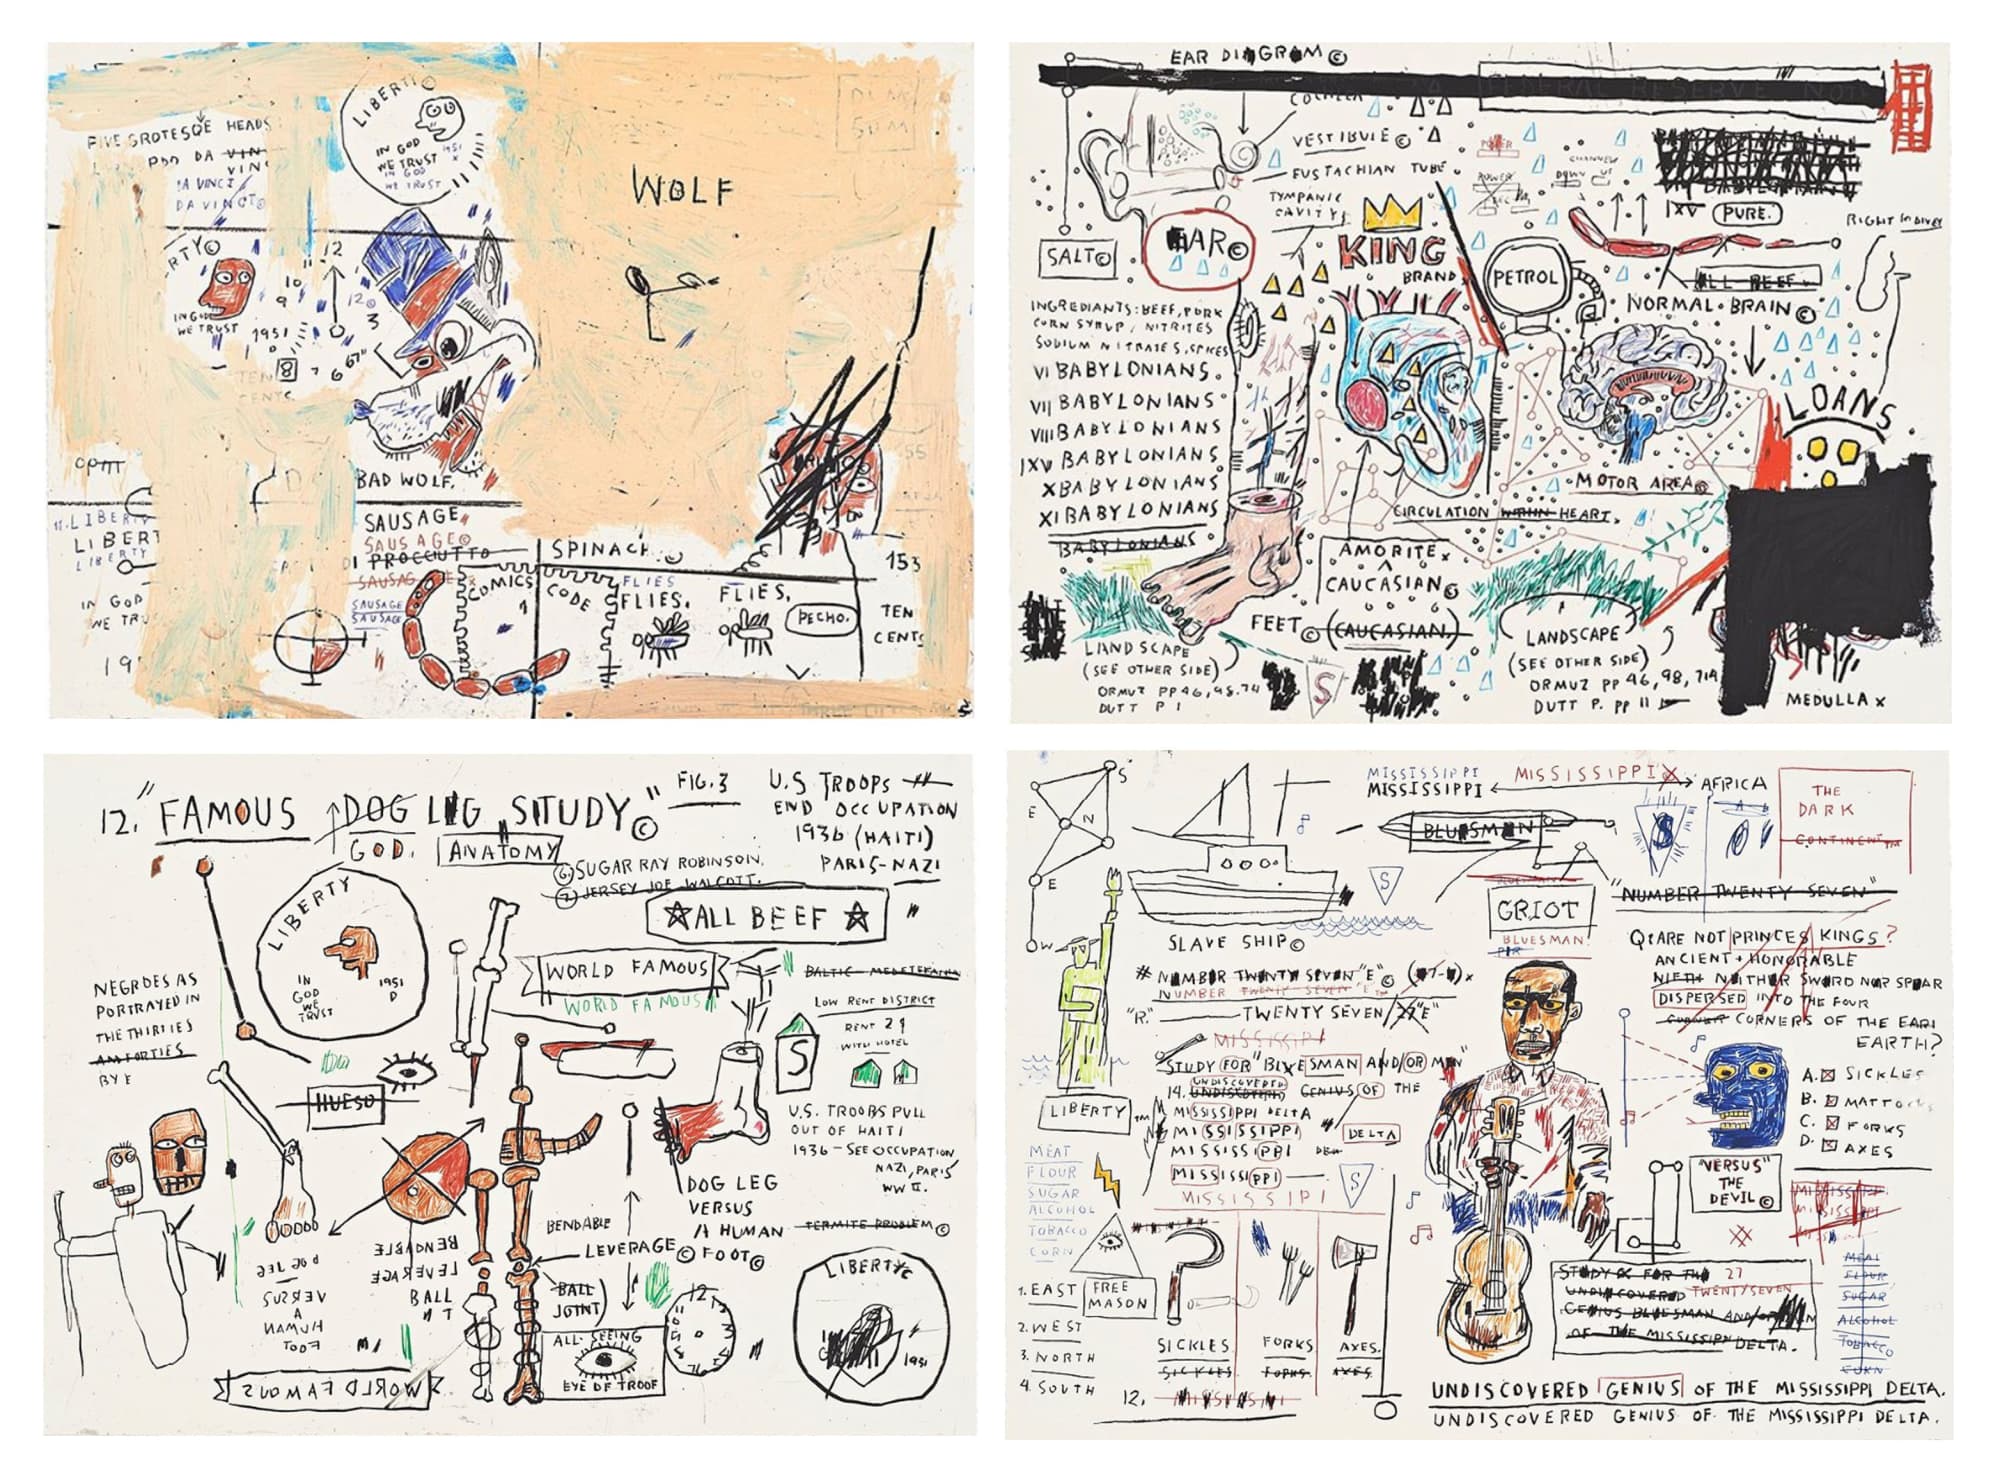 FIVE GROTESQE HEADS
DA VIN
VIN
DA VINCI
LIBERTY©
IN GOD
WE TRUST
IN GOD
WE TRUST
1951
WOLF
RTY©
IN GOD
WE TRUST
12
11
10
9
12©
3
1951
6
7
8
TEN
CENTS
BAD WOLF.
SAUSAGE
SAUSAGE©
DI PROCCIUTTO
SAUSAGE
SAUSAGE
SAUSAGE
11. LIBERTY
LIBERT
LIBERTY
IN GOD
WE TRUS
19
COMICS
CODE
SPINACH
FLIES
FLIES.
FLIES.
PECHO.
153
TEN
CENTS
EAR DIAGRAM©
FEDERAL RESERVE NOTE
COCHLEA
VESTIBULE©
EUSTACHIAN TUBE
TYMPANIC
CAVITY
SALT©
EAR©
KING
BRAND
POWER
CHANNEL
DOWN UP
IXV PURE.
RIGHT INDIVEX
PETROL
ALL BEEF
NORMAL BRAIN©
INGREDIANTS: BEEF, PORK
CORN SYRUP, NITRITES
SODIUM NITRATES, SPICES
VI BABYLONIANS.
VII BABYLONIANS
VIII BABYLONIANS
IXV BABYLONIANS
X BABYLONIANS
XI BABYLONIANS
BABYLONIANS
LOANS
MOTOR AREA©
CIRCULATION WITHIN HEART.
AMORITE x
CAUCASIAN©
FEET© (CAUCASIAN.)
LANDSCAPE
(SEE OTHER SIDE)
ORMUZ PP 46, 98, 71
DUTT P 1
S
LANDSCAPE
(SEE OTHER SIDE)
ORMUZ PP 46, 98, 71A
DUTT P. PP 11
MEDULLA x
12. "FAMOUS DOG LEG STUDY"©
FIG. 3
GOD.
ANATOMY
U.S TROOPS
END OCCUPATION
1936 (HAITI)
PARIS-NAZI
6. SUGAR RAY ROBINSON.
7. JERSEY JOE WALCOTT.
ALL BEEF
LIBERTY
IN
GOD
WE
TRUST
1951
D
WORLD FAMOUS
WORLD FAMOUS
BALTIC - MEDETERANIAN
LOW RENT DISTRICT
RENT 29
WITH HOTEL
S
NEGROES AS
PORTRAYED IN
THE THIRTIES
AM FORTIES
BY E
HUESO
U.S. TROOPS PULL
OUT OF HAITI
1936 - SEE OCCUPATION
NAZI, PARIS
WW II.
DOG LEG
VERSUS
A HUMAN
FOOT©
TERMITE PROBLEM©
BENDABLE
LEVERAGE©
BALL
JOINT
DOG LEG
VERSUS
A
HUMAN
FOOT
BENDABLE
LEVERAGE
BALL
ALL SEEING
EYE OF TROOF
12
LIBERTY©
1951
WORLD FAMOUS
S
E
N
E
W
MISSISSIPPI
MISSISSIPPI
MISSISSIPPI
AFRICA
THE
DARK
CONTINENT™
BLUESMAN
S
S
SLAVE SHIP©
GRIOT
BLUESMAN
"NUMBER TWENTY SEVEN"
# NUMBER TWENTY SEVEN "E"©
NUMBER TWENTY SEVEN "E"™
"R."
TWENTY SEVEN / 27 "E"
Q: ARE NOT PRINCES KINGS?
ANCIENT + HONORABLE
NIETH NEITHER SWORD NOR SPEAR
DISPERSED INTO THE FOUR
CORNER CORNERS OF THE EARI
EARTH?
MISSISSIPPI
STUDY FOR "BLUESMAN AND/OR MEN"
UNDISCOVERED
14. UNDISCOVERED GENIUS OF THE
MISSISSIPPI DELTA
MISSISSIPPI
MISSISSIPPI
MISSISSIPPI
MISSISSIPI
DELTA
S
LIBERTY ™
MEAT
FLOUR
SUGAR
ALCOHOL
TOBACCO
CORN
FREE
MASON
1. EAST
2. WEST
3. NORTH
4. SOUTH
SICKLES
SICKLES
FORKS
FORKS
AXES.
AXES
12.
A. SICKLES
B. MATTOCKS
C. FORKS
D. AXES
"VERSUS"
THE
DEVIL©
MISSISSIPPI
MISSISSIPPI
STUDY FOR THE 27
UNDISCOVERED TWENTYSEVEN
GENIUS BLUESMAN AND/OR MEN
OF THE MISSISSIPPI DELTA.
MEAT
FLOUR
SUGAR
ALCOHOL
TOBACCO
CORN
UNDISCOVERED GENIUS OF THE MISSISSIPPI DELTA.
UNDISCOVERED GENIUS OF THE MISSISSIPPI DELTA.